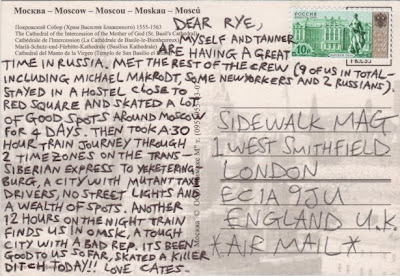 Москва – Moscow – Moscou – Moskau – Moscú
Покровский Собор (Храм Василия Блаженного) 1555-1563
The Cathedral of the Intercession of the Mother of God (St. Basil's Cathedral)
Cathédrale de l'Intercession (La Cathédrale de Basile-le-Bienheureux)
Mariä-Schutz-und-Fürbitte-Kathedrale (Basilius Kathedrale)
Catedral del Manto de la Virgen (Templo de San Basilio el
РОССИЯ
10р
DEAR RYE,
MYSELF AND TANNER
ARE HAVING A GREAT
TIME IN RUSSIA. MET THE REST OF THE CREW (9 OF US IN TOTAL-
INCLUDING MICHAEL MAKRODT, SOME NEW YORKERS AND 2 RUSSIANS).
STAYED IN A HOSTEL CLOSE TO
RED SQUARE AND SKATED A LOT
OF GOOD SPOTS AROUND MOSCOW
FOR 4 DAYS. THEN TOOK A 30
HOUR TRAIN JOURNEY THROUGH
2 TIMEZONES ON THE TRANS-
SIBERIAN EXPRESS TO YEKETERING
BURG, A CITY WITH MUTANT TAXI
DRIVERS, NO STREET LIGHTS AND
A WEALTH OF SPOTS. ANOTHER
12 HOURS ON THE NIGHT TRAIN
FINDS US IN OMSK, A TOUGH
CITY WITH A BAD REP. ITS BEEN
GOOD TO US SO FAR, SKATED A KILLER
DITCH TODAY!!! LOVE CATES-
SIDEWALK MAG
1 WEST SMITHFIELD
LONDON
EC1A 9JU
ENGLAND U.K.
*AIR MAIL*